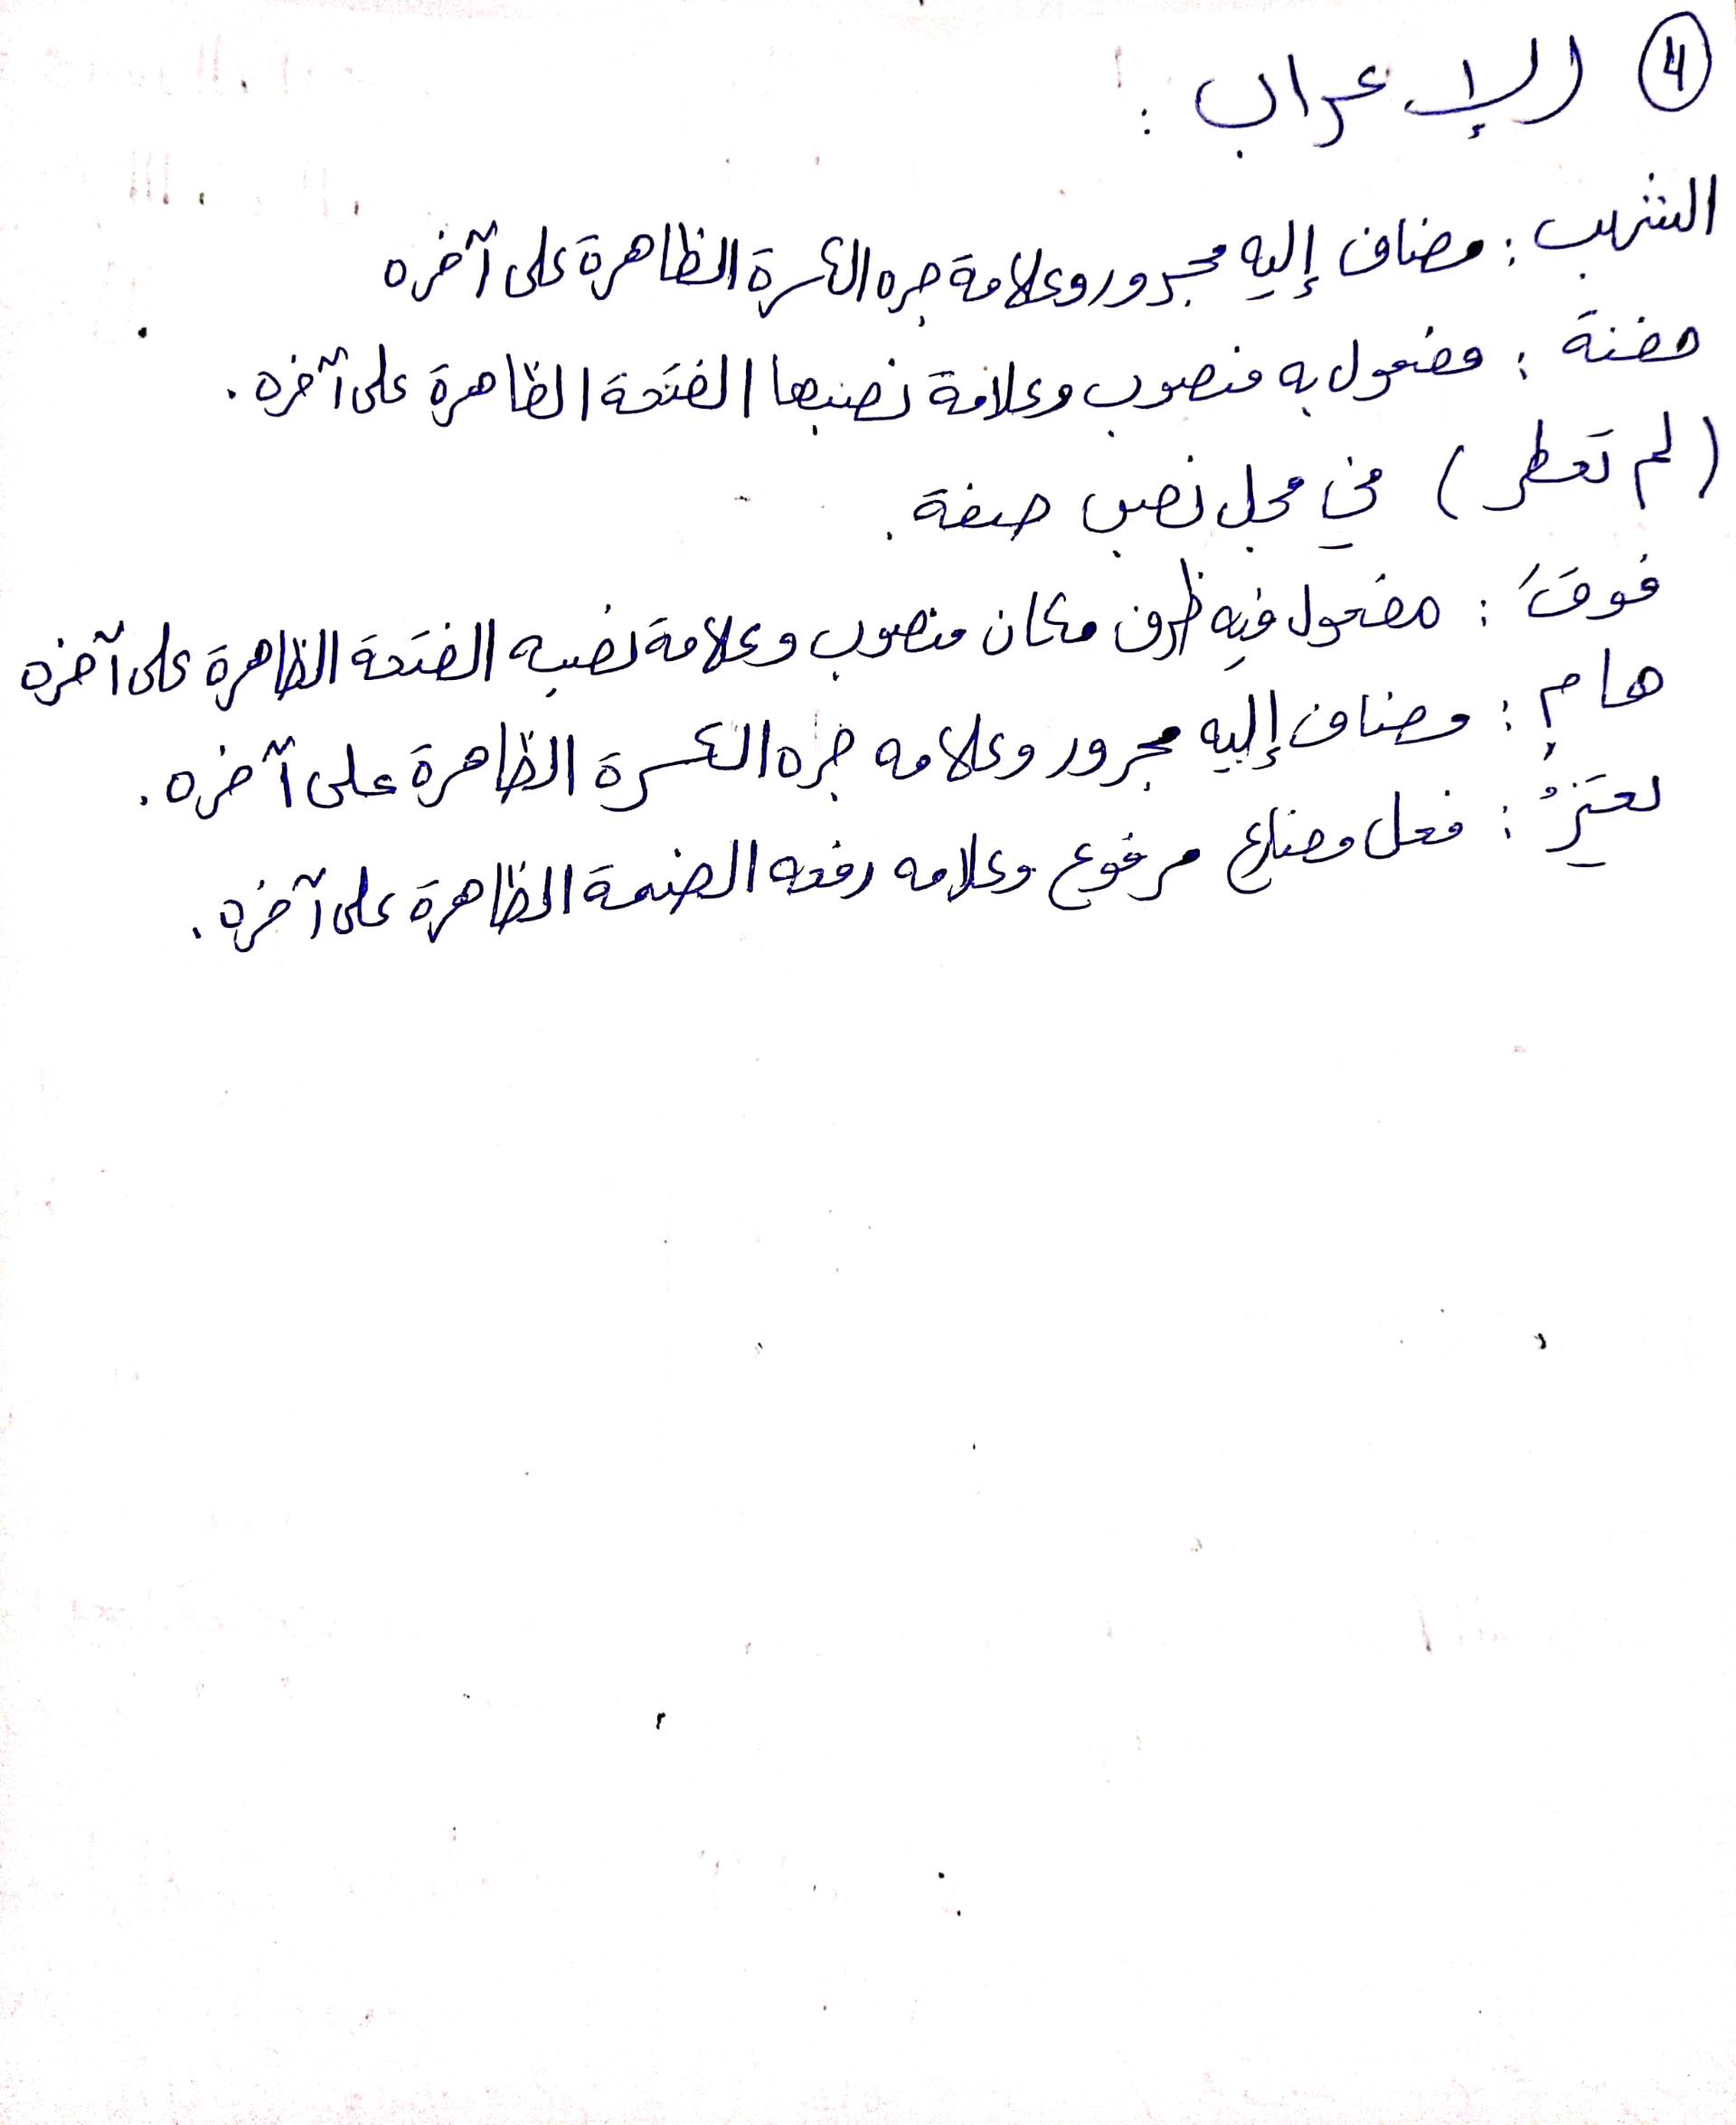 4 الإعراب :
الشهب : مضاف إليه مجرور وعلامة جره الكسرة الظاهرة على آخره
حفنة : مفعول به منصوب وعلامة نصبها الفتحة الظاهرة على آخره .
(لم تعطر) في محل نصب صفة .
فوقَ : مفعول فيه ظرف مكان منصوب وعلامة نصبه الفتحة الظاهرة على آخره
هامِ : مضاف إليه مجرور وعلامه جره الكسرة الظاهرة على آخره .
تعتزُ : فعل مضارع مرفوع وعلامه رفعه الضمة الظاهرة على آخره .